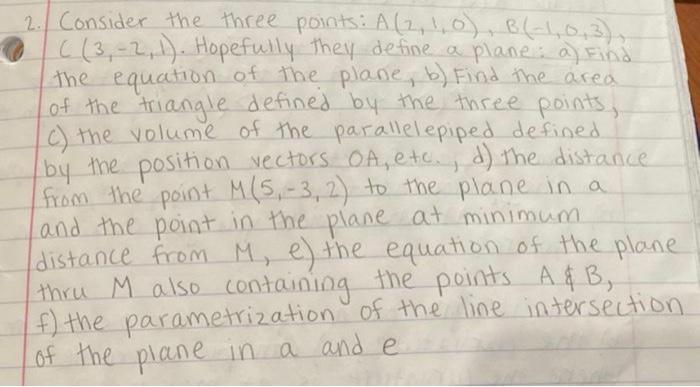 2. Consider the three points: A(2,1,0), B(-1,0,3),
C(3,-2,1). Hopefully they define a plane: a) Find
the equation of the plane, b) Find the area
of the triangle defined by the three points,
c) the volume of the parallelepiped defined
by the position vectors OA, etc., d) the distance
from the point M(5,-3,2) to the plane in a
and the point in the plane at minimum
distance from M, e) the equation of the plane
thru M also containing the points A & B,
f) the parametrization of the line intersection
of the plane in a and e